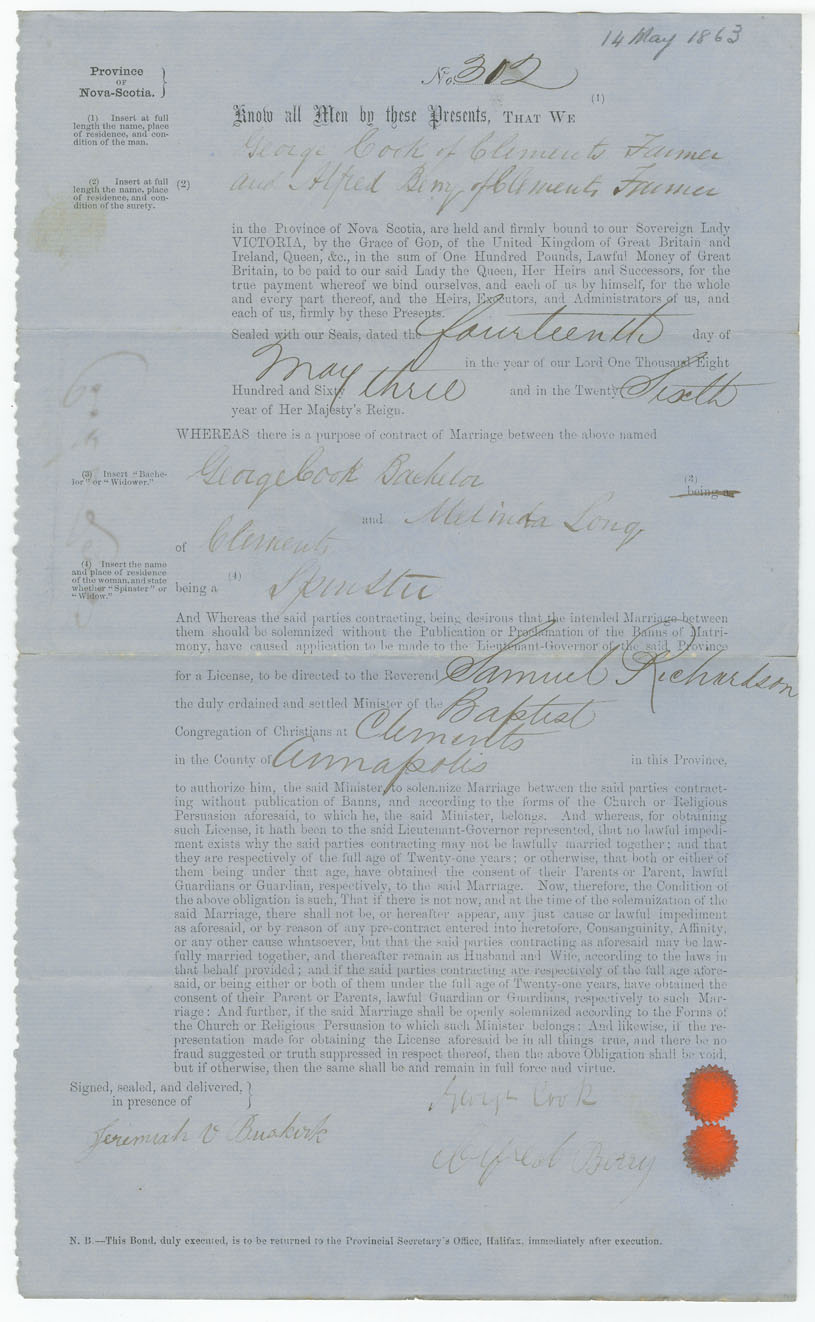 14 May 1863
Province
OF
Nova-Scotia.
No. 302
(1) Insert at full
length the name, place
of residence, and con-
dition of the man.
(1)
Know all Men by these Presents, THAT WE
George Cook of Clements Farmer
(2) Insert at full
length the name, place
of residence, and con-
dition of the surety.
(2)
and Alfred Berry of Clements Farmer
in the Province of Nova Scotia, are held and firmly bound to our Sovereign Lady
VICTORIA, by the Grace of GOD, of the United Kingdom of Great Britain and
Ireland, Queen, &c., in the sum of One Hundred Pounds, Lawful Money of Great
Britain, to be paid to our said Lady the Queen, Her Heirs and Successors, for the
true payment whereof we bind ourselves, and each of us by himself, for the whole
and every part thereof, and the Heirs, Executors, and Administrators of us, and
each of us, firmly by these Presents.
Sealed with our Seals, dated the fourteenth day of
May in the year of our Lord One Thousand Eight
Hundred and Sixty three and in the Twenty Sixth
year of Her Majesty's Reign.
WHEREAS there is a purpose of contract of Marriage between the above named
(3) Insert "Bache-
lor" or "Widower."
George Cook Bachelor
(3)
being a
and Melinda Long
of Clements
(4) Insert the name
and place of residence
of the woman, and state
whether "Spinster" or
"Widow."
(4)
being a Spinster
And Whereas the said parties contracting, being desirous that the intended Marriage between
them should be solemnized without the Publication or Proclamation of the Banns of Matri-
mony, have caused application to be made to the Lieutenant-Governor of the said Province
for a License, to be directed to the Reverend Samuel Richardson
the duly ordained and settled Minister of the Baptist
Congregation of Christians at Clements
in the County of Annapolis in this Province,
to authorize him, the said Minister, to solemnize Marriage between the said parties contract-
ing without publication of Banns, and according to the forms of the Church or Religious
Persuasion aforesaid, to which he, the said Minister, belongs. And whereas, for obtaining
such License, it hath been to the said Lieutenant-Governor represented, that no lawful impedi-
ment exists why the said parties contracting may not be lawfully married together; and that
they are respectively of the full age of Twenty-one years; or otherwise, that both or either of
them being under that age, have obtained the consent of their Parents or Parent, lawful
Guardians or Guardian, respectively, to the said Marriage. Now, therefore, the Condition of
the above obligation is such, That if there is not now, and at the time of the solemnization of the
said Marriage, there shall not be, or hereafter appear, any just cause or lawful impediment
as aforesaid, or by reason of any pre-contract entered into heretofore, Consanguinity, Affinity,
or any other cause whatsoever, but that the said parties contracting as aforesaid may be law-
fully married together, and thereafter remain as Husband and Wife, according to the laws in
that behalf provided; and if the said parties contracting are respectively of the full age afore-
said, or being either or both of them under the full age of Twenty-one years, have obtained the
consent of their Parent or Parents, lawful Guardian or Guardians, respectively to such Mar-
riage: And further, if the said Marriage shall be openly solemnized according to the Forms of
the Church or Religious Persuasion to which such Minister belongs: And likewise, if the re-
presentation made for obtaining the License aforesaid be in all things true, and there be no
fraud suggested or truth suppressed in respect thereof, then the above Obligation shall be void,
but if otherwise, then the same shall be and remain in full force and virtue.
Signed, sealed, and delivered,
in presence of
George Cook
Jeremiah V Buskirk
Alfred Berry
N. B.—This Bond, duly executed, is to be returned to the Provincial Secretary's Office, Halifax, immediately after execution.